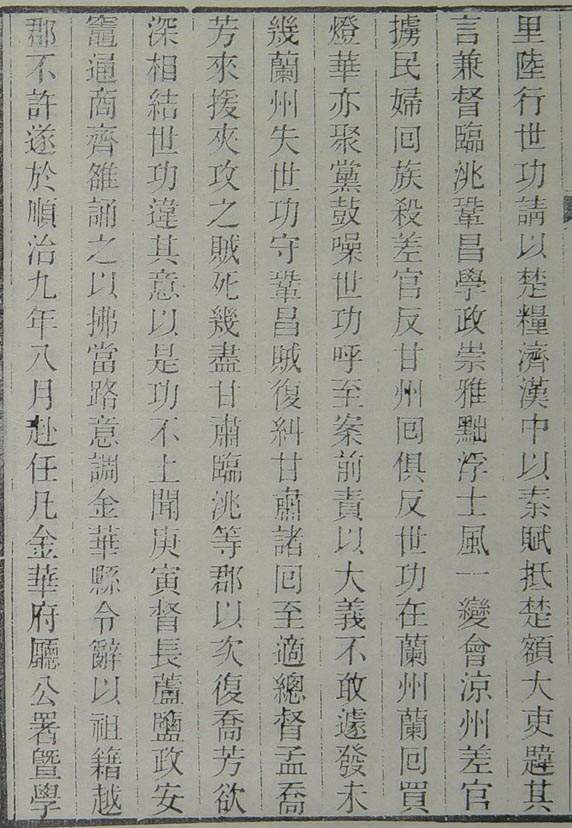 里陸行世功請以楚糧濟漢中以秦賦抵楚額大吏韙其
言兼督臨洮鞏昌學政崇雅黜浮士風一變會涼州差官
擄民婦回族殺差官反甘州回俱反世功在蘭州蘭回買
燈華亦聚黨鼓噪世功呼至案前責以大義不敢遽發未
幾蘭州失世功守鞏昌賊復糾甘肅諸回至適總督孟喬
芳來援夾攻之賊死幾盡甘肅臨洮等郡以次復喬芳欲
深相結世功違其意以是功不上聞庚寅督長蘆鹽政安
竈通商齊雒誦之以拂當路意調金華縣令辭以祖籍越
郡不許遂於順治九年八月赴任凡金華府廳公署暨學